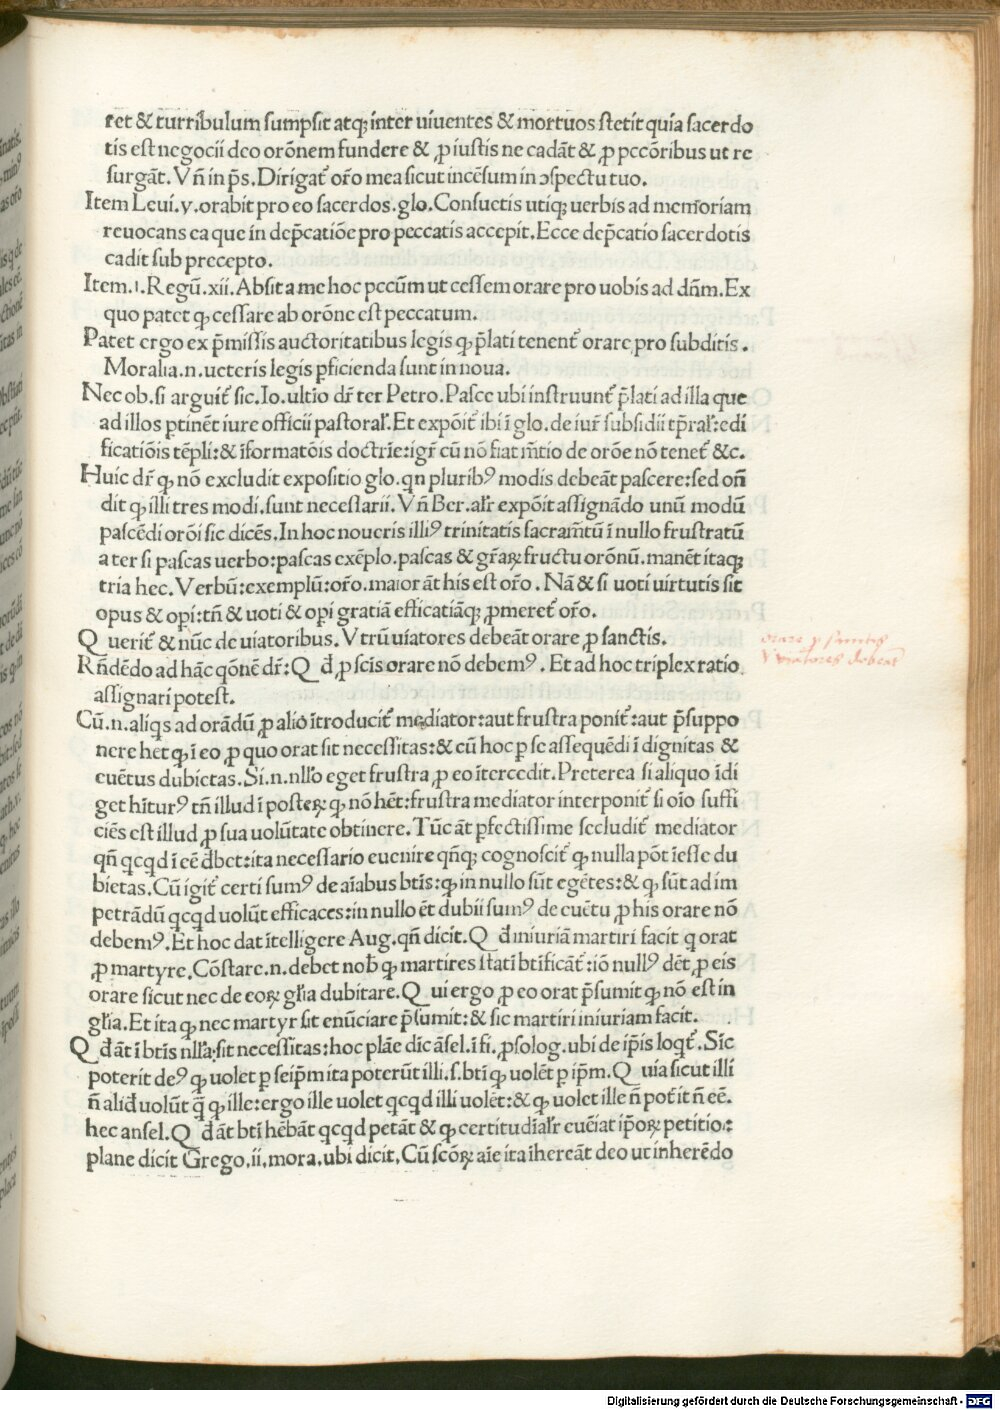 ret & turribulum sumpsit atq; inter uiuentes & mortuos stetit quia sacerdo
tis est negocii deo orōnem fundere & ꝓ iustis ne cadāt & ꝓ pccōribus ut re
surgāt. Vñ in p̄s. Dirigat᷑ or̄o mea sicut incēsum in ↄspectu tuo.
Item Leui.v.orabit pro eo sacerdos.glo.Consuetis utiq; uerbis ad memoriam
reuocans ea que in dep̄catiōe pro peccatis accepit. Ecce dep̄catio sacerdotis
cadit sub precepto.
Item.1.Regū.xii.Absit a me hoc pccūm ut cessem orare pro uobis ad dn̄m. Ex
quo patet ꝙ cessare ab orōne est peccatum.
Patet ergo ex p̄missis auctoritatibus legis ꝙ p̄lati tenent᷑ orare pro subditis.
Moralia.n.ueteris legis ꝑficienda sunt in noua.
Nec ob. si arguit᷑ sic. Io. ultio dr̄ ter Petro. Pasce ubi instruunt᷑ p̄lati ad illa que
ad illos ꝑtinēt iure officii pastoral̄. Et expōit᷑ ibi ī glo. de iur̄ subsidii tp̄ral̄: edi
ficatiōis tēpli: & īformatōis doctrīe: igr̄ cū nō fiat mētio de orōe nō tenet᷑ &c.
Huic dr̄ ꝙ nō excludit expositio glo. qn pluribꝰ modis debeāt pascere: sed on̄
dit ꝙ illi tres modi. sunt necessarii. Vñ Ber. al̄r expōit assignādo unū modū
pascēdi orōi sic dicēs. In hoc noueris illiꝰ trinitatis sacram̄tū ī nullo frustratū
a ter si pascas uerbo: pascas exēplo. pascas & gr̄aꝝ fructu orōnū. manēt itaq;
tria hec. Verbū: exemplū: or̄o. maior āt his est or̄o. Nā & si uoti uirtutis sit
opus & opi: tn̄ & uoti & opi gratiā efficatiāq; ꝓmeret᷑ or̄o.
Q uerit᷑ & nūc de uiatoribus. Vtrū uiatores debeāt orare ꝓ sanctis.
Rn̄dēdo ad hāc qōnē dr̄: Q đ ꝓ scīs orare nō debemꝰ. Et ad hoc triplex ratio
assignari potest.
Cū.n.aliq̄s ad orādū ꝓ alio ītroducit᷑ mediator: aut frustra ponit᷑: aut p̄suppo
nere het ꝙ ī eo ꝓ quo orat sit necessitas: & cū hoc ꝑ se assequēdi ī dignitas &
euētus dubietas. Si.n.nll̄o eget frustra ꝓ eo ītercedit. Preterea si aliquo īdi
get hīturꝰ tn̄ illud ī posteꝝ ꝙ nō hēt: frustra mediator interponit᷑ si oīo suffi
ciēs est illud ꝓ sua uolūtate obtinere. Tūc āt ꝑfectissime secludit᷑ mediator
qn̄ qcqd ī eē đbet: ita necessario euenire qn̄q; cognoscit᷑ ꝙ nulla pōt īesse du
bietas. Cū igit᷑ certi sumꝰ de aīabus btīs: ꝙ in nullo sūt egētes: & ꝙ sūt ad im
petrādū qcqd uolūt efficaces: in nullo ēt dubii sumꝰ de euētu ꝓ his orare nō
debemꝰ. Et hoc dat ītelligere Aug. qn̄ dicit. Q đ iniuriā martiri facit q orat
ꝓ martyre. Cōstare.n.debet nob̄ ꝙ martires stati btīficāt᷑: iō nullꝰ dēt ꝓ eis
orare sicut nec de eoꝝ gl̄ia dubitare. Q ui ergo ꝓ eo orat p̄sumit ꝙ nō est in
gl̄ia. Et ita ꝙ nec martyr sit enūciare p̄sumit: & sic martiri iniuriam facit.
Q đ āt ī btīs nll̄a sit necessitas: hoc plāe dic āsel. ī fi. ꝓsolog. ubi de ip̄is loqt᷑. Sic
poterit deꝰ ꝙ uolet ꝑ seip̄m ita poterūt illi.s.btī ꝙ uolēt ꝑ ip̄m. Q uia sicut illi
n̄ aliđ uolūt q̄ ꝙ ille: ergo ille uolet qcqd illi uolēt: & ꝙ uolet ille n̄ pot̄it n̄ eē.
hec ansel. Q đ āt btī hēbāt qcqd petāt & ꝙ certitudīal̄r euēiat ip̄oꝝ petitio:
plane dicit Grego. ii. mora. ubi dicit. Cū scōꝝ aīe ita īhereāt deo ut inherēdo
orare ꝓ sanctis
V viatores debeāt
Digitalisierung gefördert durch die Deutsche Forschungsgemeinschaft - DFG